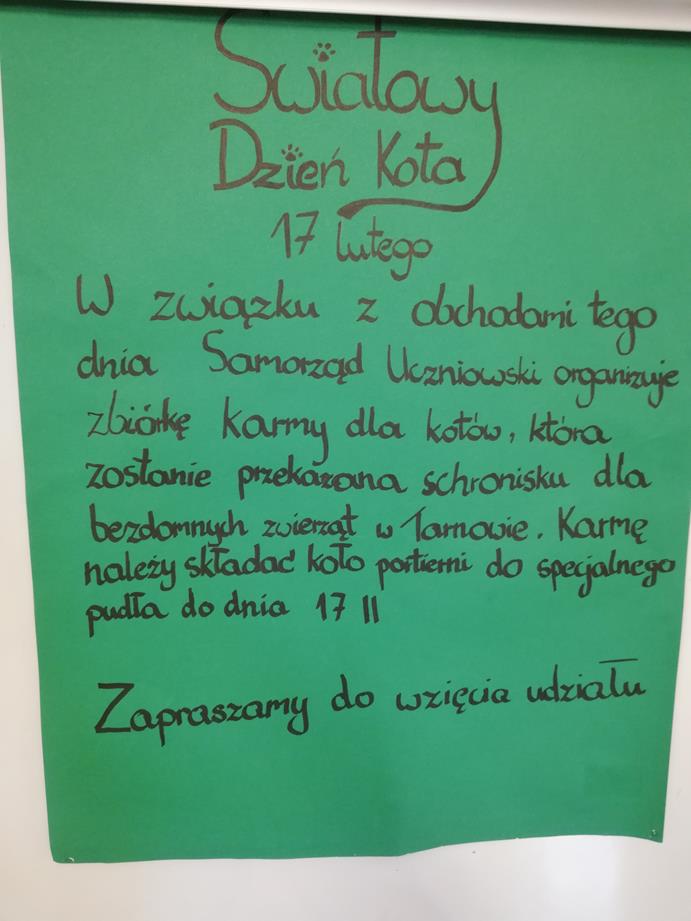 Światowy
Dzień Kota
17 lutego
W związku z obchodami tego
dnia Samorząd Uczniowski organizuje
zbiórkę karmy dla kotów, która
zostanie przekazana schronisku dla
bezdomnych zwierząt w Tarnowie. Karmę
należy składać koło portierni do specjalnego
pudła do dnia 17 II
Zapraszamy do wzięcia udziału